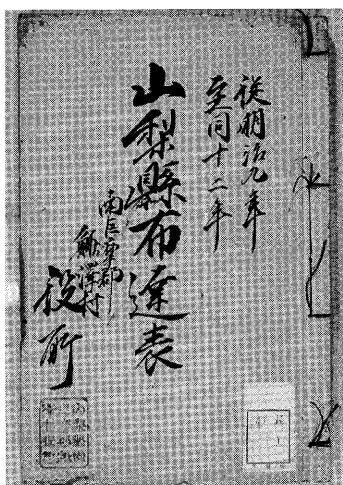 従明治九年
至同十二年
山梨縣布達表
南巨摩郡
鰍澤村
役所